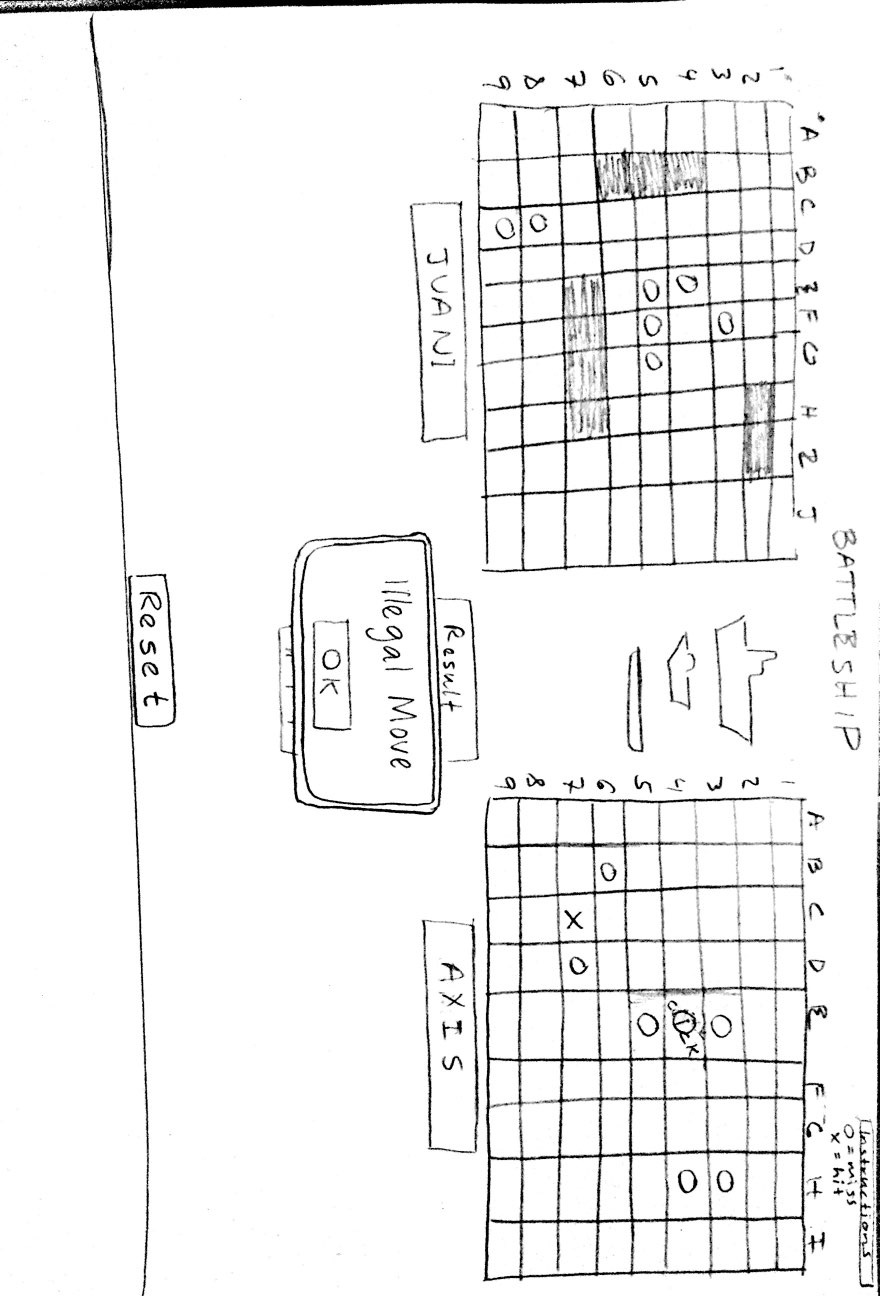 BATTLESHIP
Instructions
O = miss
x = hit
A B C D E F G H I J
1
2
3
4
5
6
7
8
9
JUANI
A B C D E F G H I
1
2
3
4
5
6
7
8
9
CLICK
AXIS
Result
Illegal Move
OK
Reset